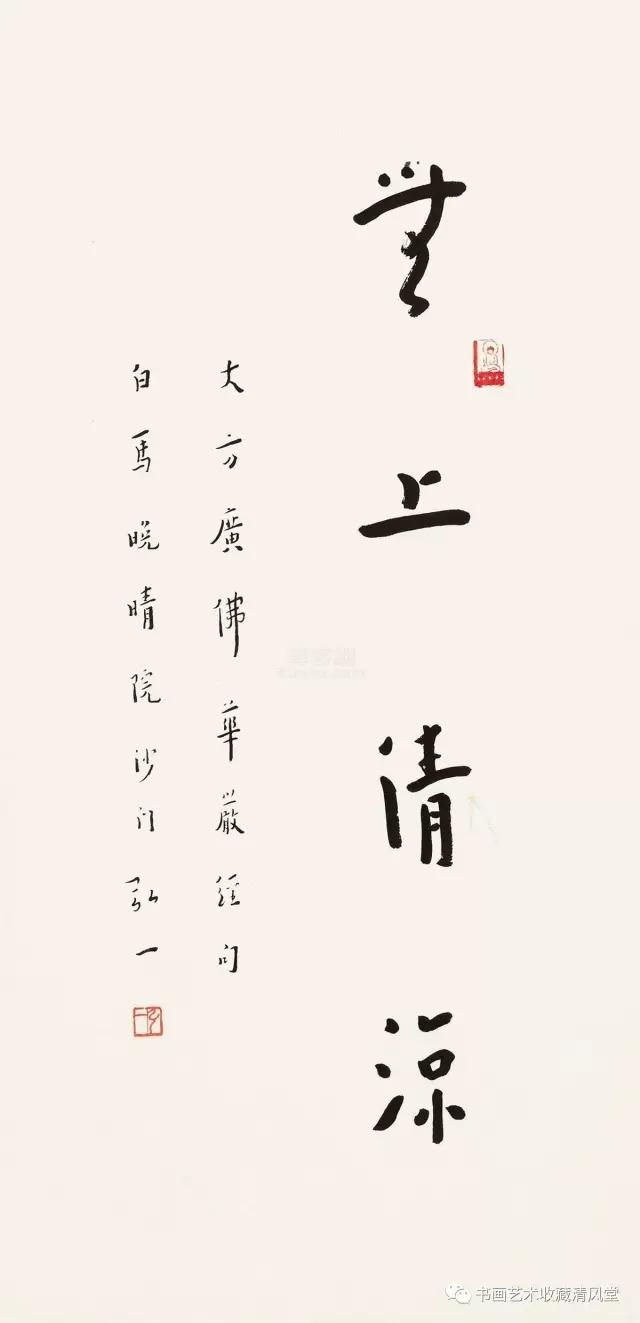 無上清涼
大方廣佛華嚴經句
白馬晚晴院沙门弘一
书画艺术收藏清风堂